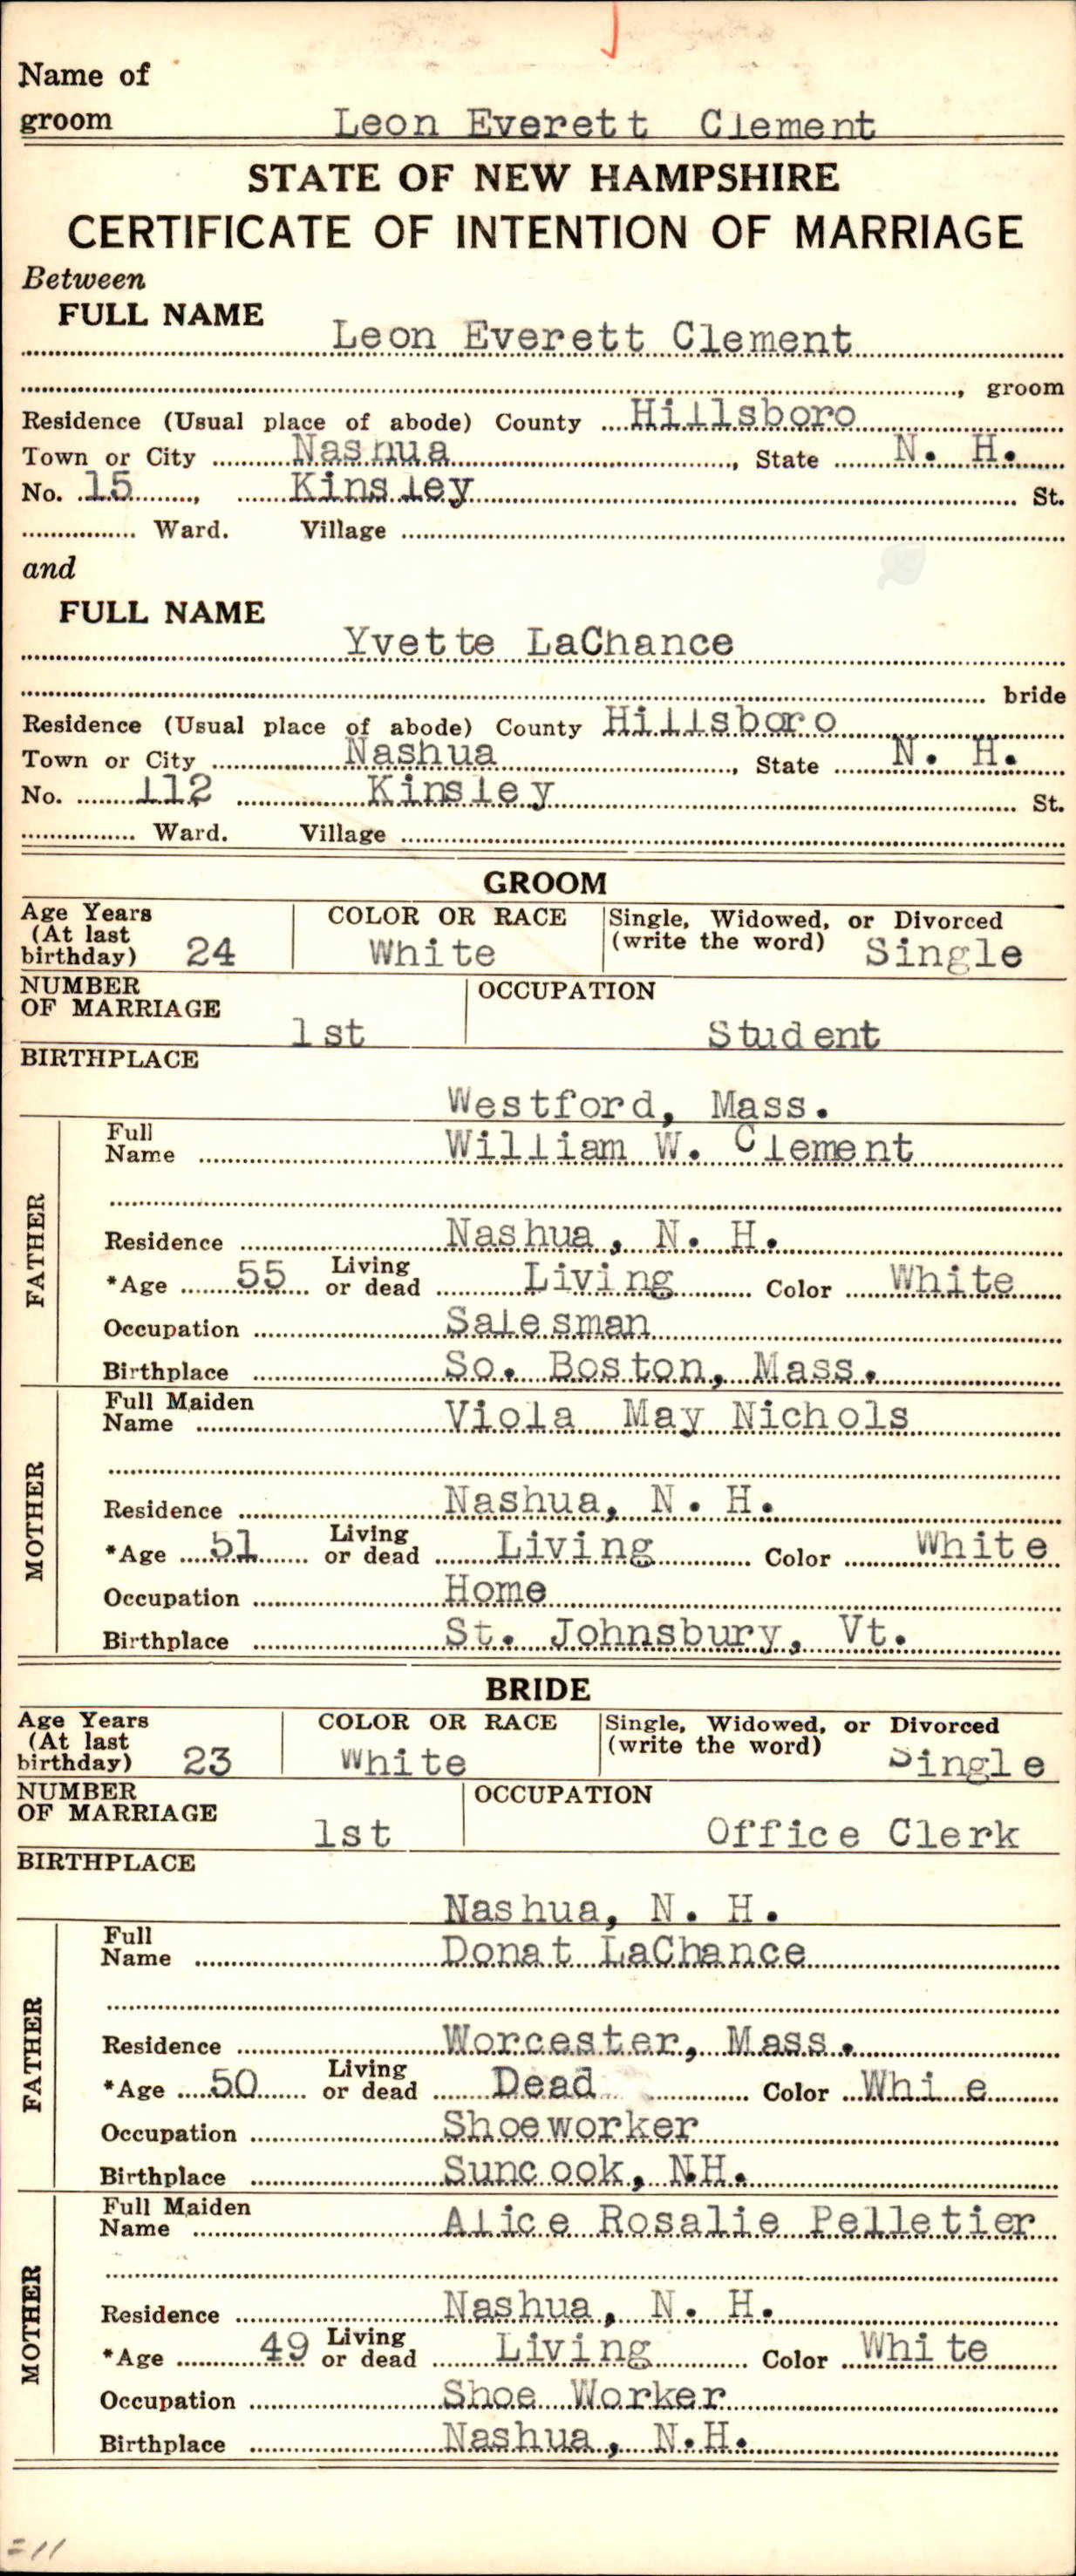 Name of
groom Leon Everett Clement
STATE OF NEW HAMPSHIRE
CERTIFICATE OF INTENTION OF MARRIAGE
Between
FULL NAME
Leon Everett Clement
, groom
Residence (Usual place of abode) County Hillsboro
Town or City Nashua, State N. H.
No. 15, Kinsley St.
Ward. Village
and
FULL NAME
Yvette LaChance
bride
Residence (Usual place of abode) County Hillsboro
Town or City Nashua, State N. H.
No. 112 Kinsley St.
Ward. Village
GROOM
Age Years (At last birthday) 24 COLOR OR RACE White Single, Widowed, or Divorced (write the word) Single
NUMBER OF MARRIAGE 1st OCCUPATION Student
BIRTHPLACE
Westford, Mass.
FATHER
Full Name William W. Clement
Residence Nashua, N. H.
*Age 55 Living or dead Living Color White
Occupation Salesman
Birthplace So. Boston, Mass.
MOTHER
Full Maiden Name Viola May Nichols
Residence Nashua, N. H.
*Age 51 Living or dead Living Color White
Occupation Home
Birthplace St. Johnsbury, Vt.
BRIDE
Age Years (At last birthday) 23 COLOR OR RACE White Single, Widowed, or Divorced (write the word) Single
NUMBER OF MARRIAGE 1st OCCUPATION Office Clerk
BIRTHPLACE
Nashua, N. H.
FATHER
Full Name Donat LaChance
Residence Worcester, Mass.
*Age 50 Living or dead Dead Color Whi e
Occupation Shoeworker
Birthplace Suncook, N.H.
MOTHER
Full Maiden Name Alice Rosalie Pelletier
Residence Nashua, N. H.
*Age 49 Living or dead Living Color White
Occupation Shoe Worker
Birthplace Nashua, N.H.